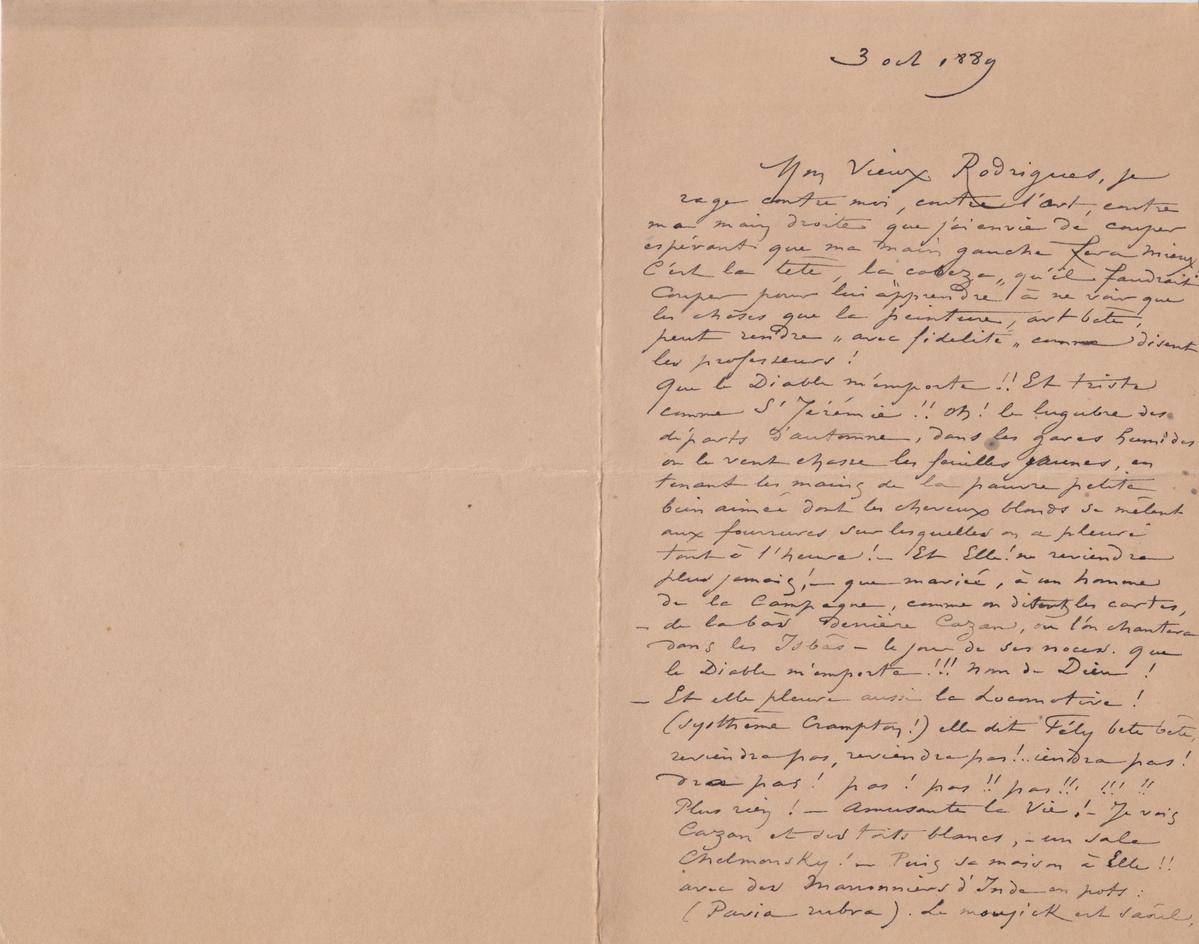 3 oct 1889
Mon Vieux Rodrigues, je
rage contre moi, contre l'art, contre
ma main droite que j'ai envie de couper
espérant que ma main gauche fera mieux
C'est la tête, la cabeza, qu'il faudrait
couper pour lui apprendre à ne voir que
les choses que la peinture, art bête,
peut rendre „ avec fidelité „ comme disent
les professeurs !
Que le Diable m'emporte !! Et triste
comme St Jérémie !! Oh ! le lugubre des
départs d'automne, dans les gares humides
ou le vent chasse les feuilles jaunes, en
tenant les mains de la pauvre petite
bien aimée dont les cheveux blonds se mêlent
aux fourrures sur lesquelles on a pleuré
tout à l'heure ! — Et Elle ! ne reviendra
plus jamais ! — que mariée, à un homme
de la Campagne, comme on dit les cartes,
— de là bas derrière Cazan, où l'on chantera
dans les Isbas — le jour de ses noces. Que
le Diable m'emporte !!! Nom de Dieu !
— Et elle pleure aussi la Locomotive !
(systhème Crampton !) elle dit Fély bete bete,
reviendra pas, reviendra pas ! .. iendra pas !
dra pas ! pas ! pas !! pas !!! !!! !!
Plus rien ! — Amusante la Vie ! — Je vois
Cazan et des toits blancs, — un sale
Chelmonsky ! — Puis sa maison à Elle !!
avec des Maronniers d'Inde en pots :
(Pavia rubra). Le moujick est saoul,